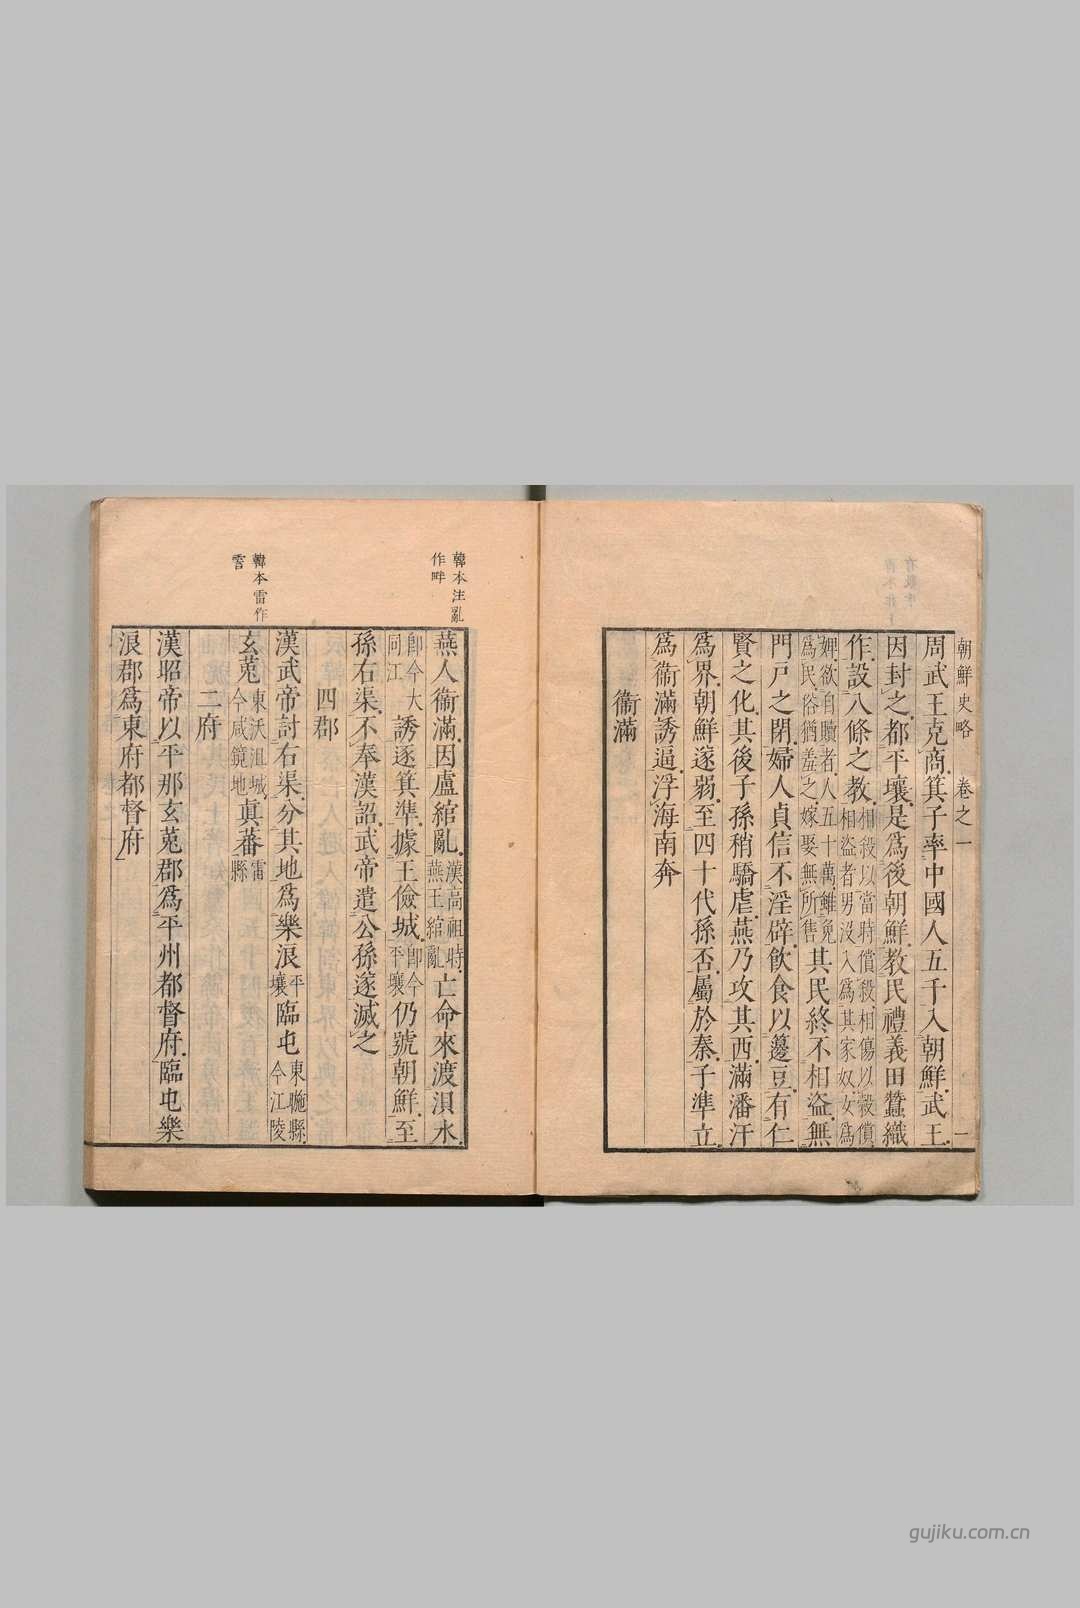 朝鮮史略 卷之一 一
周武王克商箕子率中國人五千入朝鮮武王
因封之都平壤是爲後朝鮮教民禮義田蠶織
作設八條之教相殺以當時償殺相傷以穀償相盜者男沒入爲其家奴女爲
婢欲自贖者人五十萬雖免爲民俗猶羞之嫁娶無所售其民終不相盜無
門戸之閉婦人貞信不淫辟飮食以籩豆有仁
賢之化其後子孫稍驕虐燕乃攻其西滿潘汗
爲界朝鮮遂弱至四十代孫否屬於秦子準立
爲衞滿誘逼浮海南奔
衞滿
韓本注亂
作畔
燕人衞滿因盧綰亂漢高祖時燕王綰亂亡命來渡浿水
卽今大同江誘逐箕準據王儉城卽今平壤仍號朝鮮至
孫右渠不奉漢詔武帝遣公孫遂滅之
四郡
韓本雷作
霅
漢武帝討右渠分其地爲樂浪平壤臨屯東暆縣今江陵
玄菟東沃沮城今咸鏡地眞蕃雷縣
二府
漢昭帝以平那玄菟郡爲平州都督府臨屯樂
浪郡爲東府都督府
gujiku.com.cn